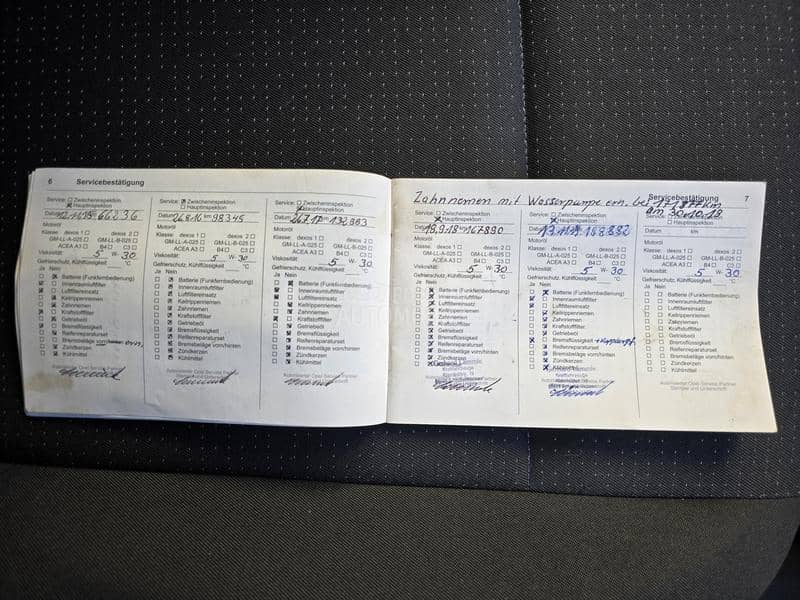 6 Servicebestätigung
Service: Zwischeninspektion
Hauptinspektion
66236
Motoröl
Klasse: dexos 1 dexos 2
GM-LL-A-025 GM-LL-B-025
ACEA A3 B4 C3
Viskosität: 5 W- 30
Gefrierschutz, Kühlflüssigkeit °C
Ja Nein
Batterie (Funkfernbedienung)
Innenraumluftfilter
Luftfiltereinsatz
Keilrippenriemen
Zahnriemen
Kraftstofffilter
Getriebeöl
Bremsflüssigkeit
Reifenreparaturset
Bremsbeläge vorn/hinten
Zündkerzen
Kühlmittel
Autorisierter Opel Service Partner
Service: Zwischeninspektion
Hauptinspektion
Datum 26.8.16 km 98345
Motoröl
Klasse: dexos 1 dexos 2
GM-LL-A-025 GM-LL-B-025
ACEA A3 B4 C3
Viskosität: 5 W- 30
Gefrierschutz, Kühlflüssigkeit °C
Ja Nein
Batterie (Funkfernbedienung)
Innenraumluftfilter
Luftfiltereinsatz
Keilrippenriemen
Zahnriemen
Kraftstofffilter
Getriebeöl
Bremsflüssigkeit
Reifenreparaturset
Bremsbeläge vorn/hinten
Zündkerzen
Kühlmittel
Autorisierter Opel Service Partner
Stempel und Unterschrift
Service: Zwischeninspektion
Hauptinspektion
Datum
Motoröl
Klasse: dexos 1 dexos 2
GM-LL-A-025 GM-LL-B-025
ACEA A3 B4 C3
Viskosität: 5 W- 30
Gefrierschutz, Kühlflüssigkeit °C
Ja Nein
Batterie (Funkfernbedienung)
Innenraumluftfilter
Luftfiltereinsatz
Keilrippenriemen
Zahnriemen
Kraftstofffilter
Getriebeöl
Bremsflüssigkeit
Reifenreparaturset
Bremsbeläge vorn/hinten
Zündkerzen
Kühlmittel
Autorisierter Opel Service Partner
Stempel und Unterschrift
mit Wasserpumpe ern. bei km
Servicebestätigung 7
am 30.10.18
Service: Zwischeninspektion
Hauptinspektion
167890
Motoröl
Klasse: dexos 1 dexos 2
GM-LL-A-025 GM-LL-B-025
ACEA A3 B4 C3
Viskosität: 5 W- 30
Gefrierschutz, Kühlflüssigkeit °C
Ja Nein
Batterie (Funkfernbedienung)
Innenraumluftfilter
Luftfiltereinsatz
Keilrippenriemen
Zahnriemen
Kraftstofffilter
Getriebeöl
Bremsflüssigkeit
Reifenreparaturset
Bremsbeläge vorn/hinten
Zündkerzen
Service: Zwischeninspektion
Hauptinspektion
Motoröl
Klasse: dexos 1 dexos 2
GM-LL-A-025 GM-LL-B-025
ACEA A3 B4 C3
Viskosität: 5 W- 30
Gefrierschutz, Kühlflüssigkeit °C
Ja Nein
Batterie (Funkfernbedienung)
Innenraumluftfilter
Luftfiltereinsatz
Keilrippenriemen
Zahnriemen
Kraftstofffilter
Getriebeöl
Bremsflüssigkeit
Reifenreparaturset
Bremsbeläge vorn/hinten
Zündkerzen
Kühlmittel
Service: Zwischeninspektion
Hauptinspektion
Datum km
Motoröl
Klasse: dexos 1 dexos 2
GM-LL-A-025 GM-LL-B-025
ACEA A3 B4 C3
Viskosität: 5 W- 30
Gefrierschutz, Kühlflüssigkeit °C
Ja Nein
Batterie (Funkfernbedienung)
Innenraumluftfilter
Luftfiltereinsatz
Keilrippenriemen
Zahnriemen
Kraftstofffilter
Getriebeöl
Bremsflüssigkeit
Reifenreparaturset
Bremsbeläge vorn/hinten
Zündkerzen
Kühlmittel
Autorisierter Opel Service Partner
Stempel und Unterschrift